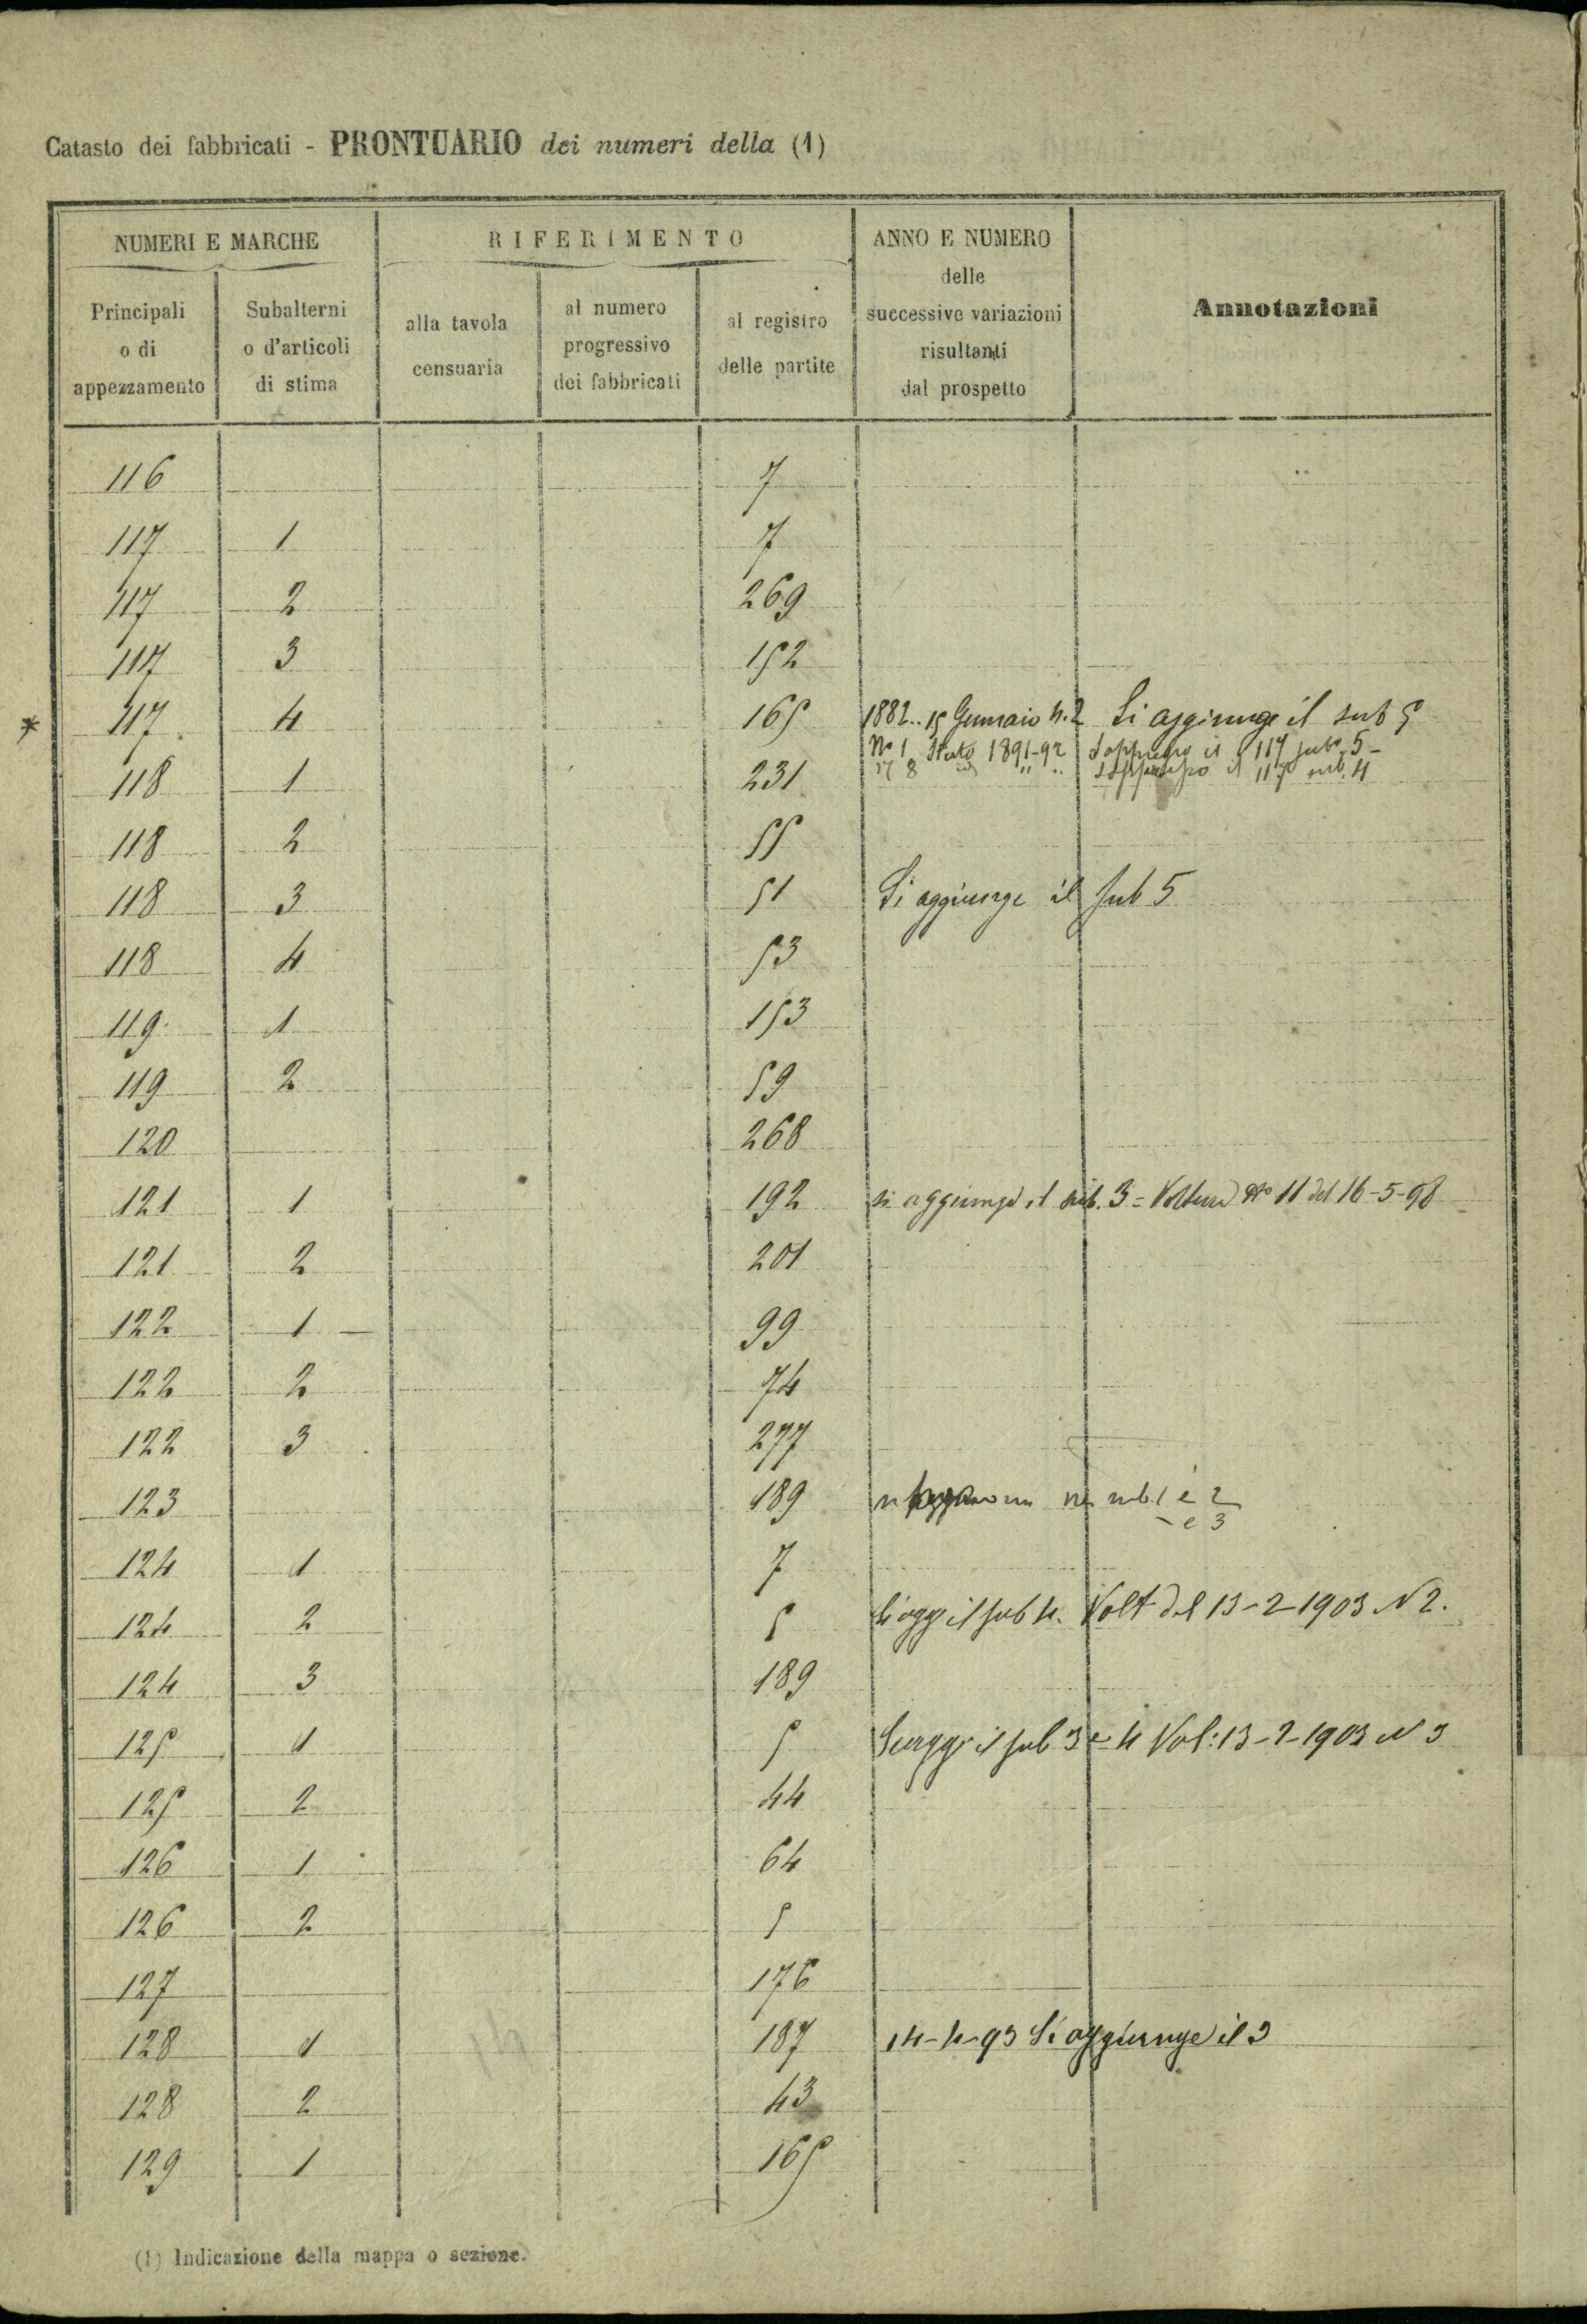 Catasto dei fabbricati - PRONTUARIO dei numeri della (1)
NUMERI E MARCHE
RIFERIMENTO
ANNO E NUMERO
delle
successive variazioni
risultanti
dal prospetto
Annotazioni
Principali
o di
appezzamento
Subalterni
o d'articoli
di stima
alla tavola
censuaria
al numero
progressivo
dei fabbricati
al registro
delle partite
116 7
117 1 7
117 2 269
117 3 152
* 117 4 165 1882.. 15 Gennaio N. 2 Si aggiunge il sub 5
No 1 Stato 1891-92 Soppresso il 117 sub 5 -
118 1 231 N 8 id " " soppresso il 117 sub. 4
118 2 55
118 3 51 Si aggiunge il sub 5
118 4 53
119 1 153
119 2 59
120 268
121 1 192 si aggiunge il sub. 3 = Voltura No 11 del 16-5-98
121 2 201
122 1 - 99
122 2 74
122 3 277
123 189 sub 1 e 2
- e 3
124 1 7
124 2 5 Si agg il sub 4. Volt del 13-2-1903 N 2.
124 3 189
125 1 5 il sub 3 e 4 Vol: 13-2-1903 N 3
125 2 44
126 1 64
126 2 5
127 176
128 1 187 14-4-93 Si aggiunge il 3
128 2 43
129 1 165
(1) Indicazione della mappa o sezione.